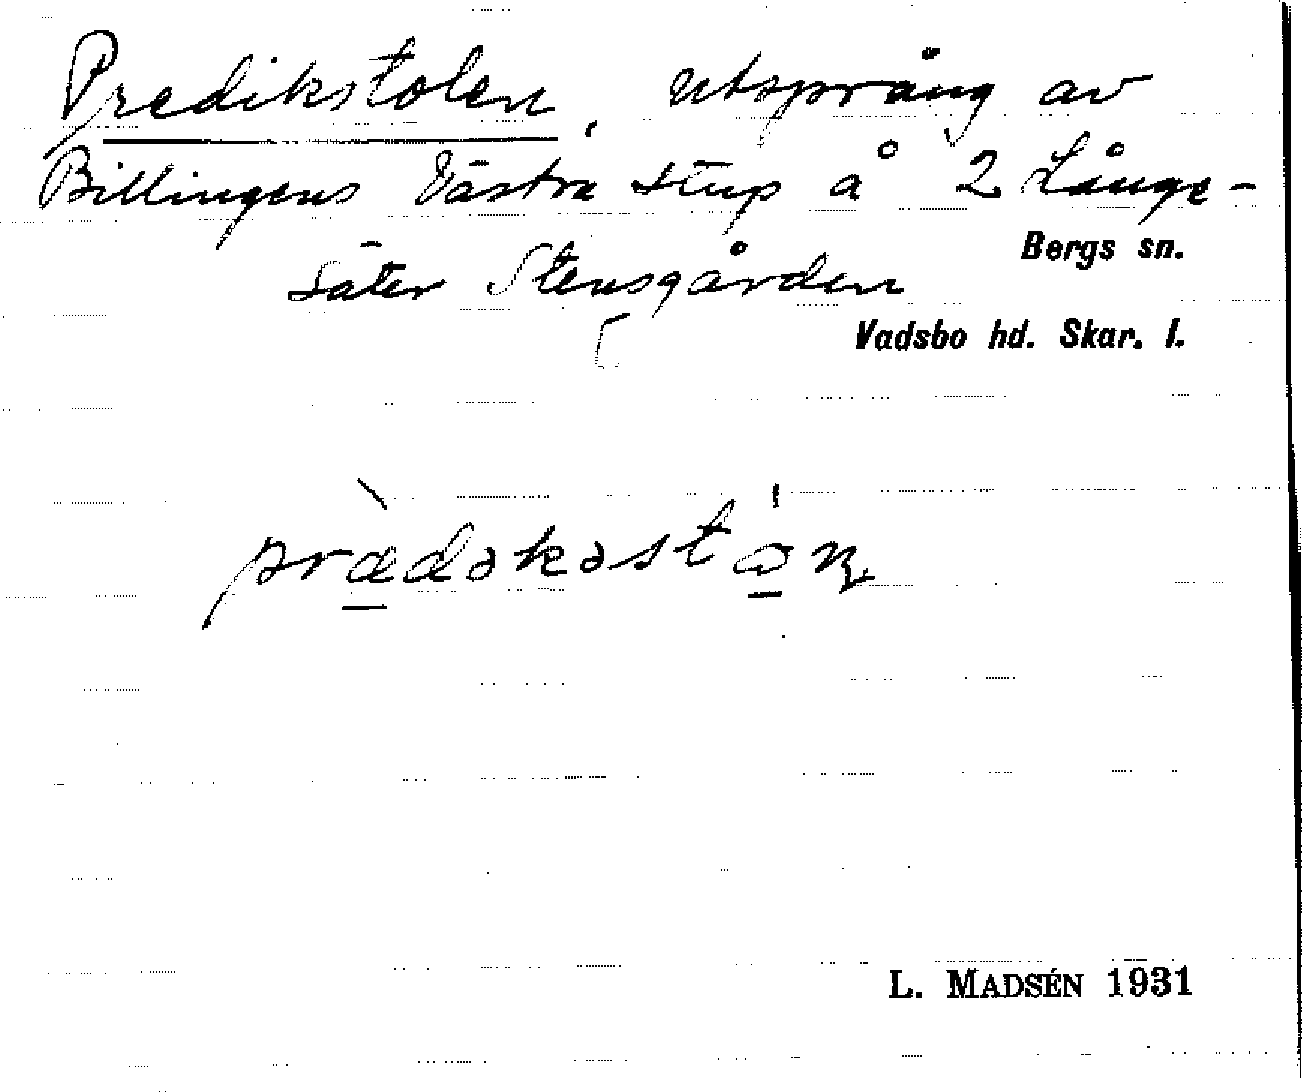 Predikstolen, utsprång av
Billingens Västra stup å 2 Långe-
Bergs sn.
säter Stensgården
Vadsbo hd. Skar. l.
prædəkəstɷn
L. MADSÉN 1931